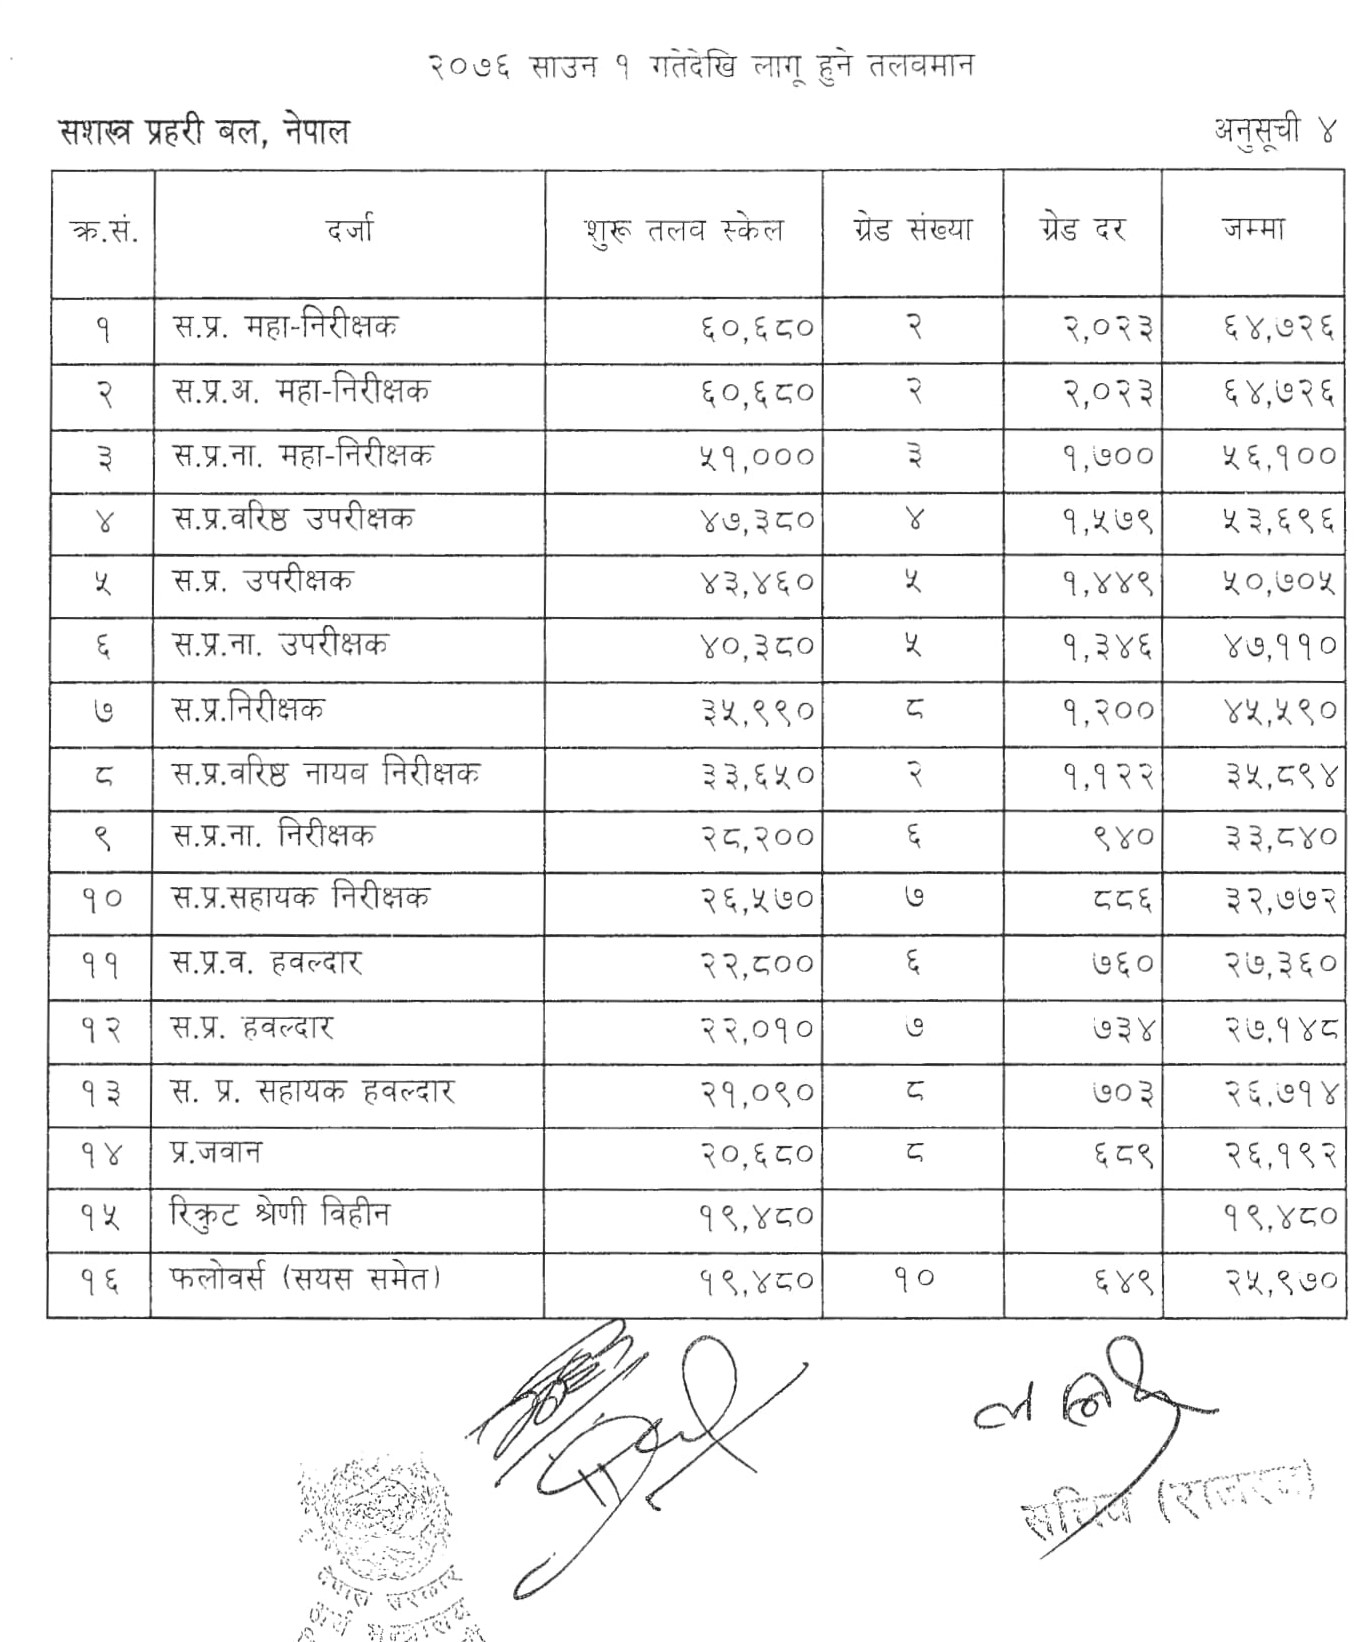 २०७६ साउन १ गतेदेखि लागू हुने तलवमान
सशस्त्र प्रहरी बल, नेपाल अनुसूची ४
क्र.सं. दर्जा शुरू तलव स्केल ग्रेड संख्या ग्रेड दर जम्मा
१ स.प्र. महा-निरीक्षक ६०,६८० २ २,०२३ ६४,७२६
२ स.प्र.अ. महा-निरीक्षक ६०,६८० २ २,०२३ ६४,७२६
३ स.प्र.ना. महा-निरीक्षक ५१,००० ३ १,७०० ५६,१००
४ स.प्र.वरिष्ठ उपरीक्षक ४७,३८० ४ १,५७९ ५३,६९६
५ स.प्र. उपरीक्षक ४३,४६० ५ १,४४९ ५०,७०५
६ स.प्र.ना. उपरीक्षक ४०,३८० ५ १,३४६ ४७,११०
७ स.प्र.निरीक्षक ३५,९९० ८ १,२०० ४५,५९०
८ स.प्र.वरिष्ठ नायव निरीक्षक ३३,६५० २ १,१२२ ३५,८९४
९ स.प्र.ना. निरीक्षक २८,२०० ६ ९४० ३३,८४०
१० स.प्र.सहायक निरीक्षक २६,५७० ७ ८८६ ३२,७७२
११ स.प्र.व. हवल्दार २२,८०० ६ ७६० २७,३६०
१२ स.प्र. हवल्दार २२,०१० ७ ७३४ २७,१४८
१३ स. प्र. सहायक हवल्दार २१,०९० ८ ७०३ २६,७१४
१४ प्र.जवान २०,६८० ८ ६८९ २६,१९२
१५ रिक्रुट श्रेणी विहीन १९,४८० १९,४८०
१६ फलोवर्स (सयस समेत) १९,४८० १० ६४९ २५,९७०
सचिव
नेपाल सरकार
अर्थ मन्त्रालय